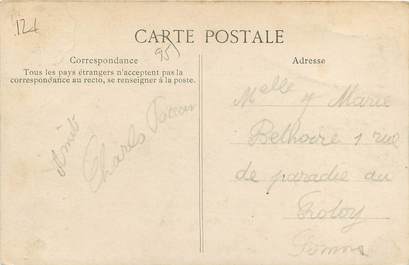 124
CARTE POSTALE
951
Correspondance
Tous les pays étrangers n'acceptent pas la
correspondance au recto, se renseigner à la poste.
Charles
Adresse
Melle Marie
1 rue
de paradie au
Somme